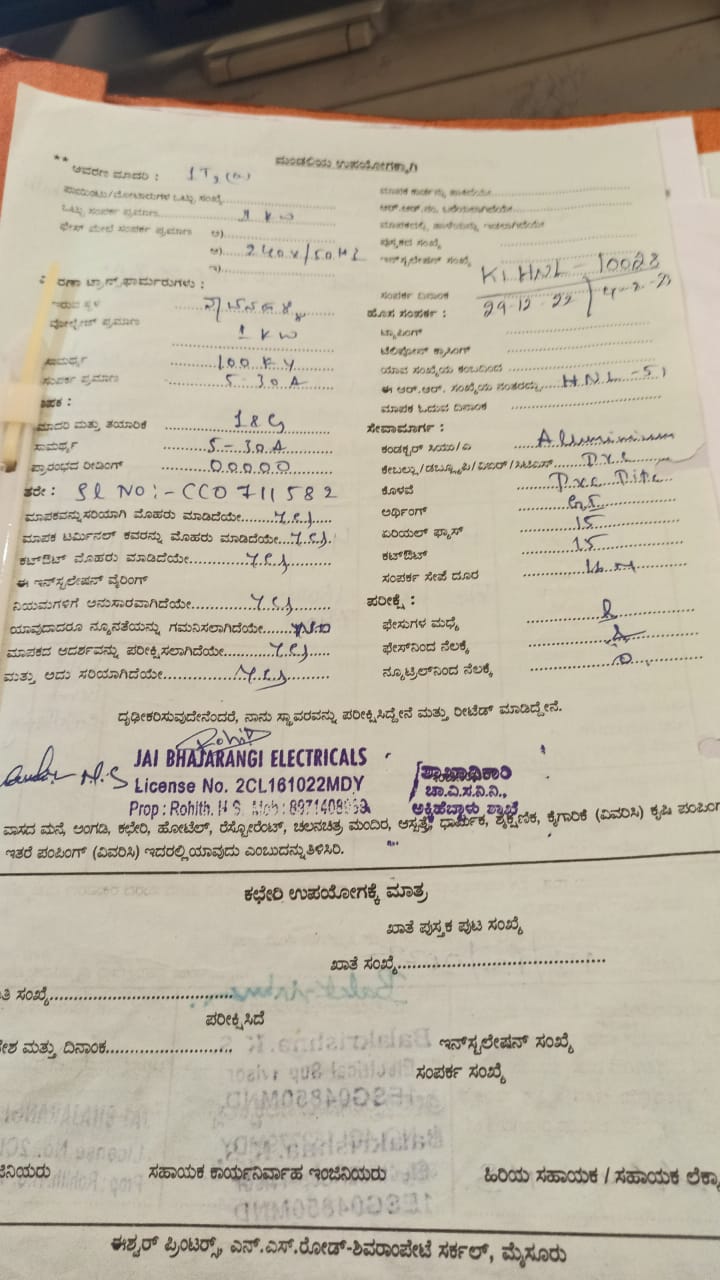 ** ಆವರಣ ಮಾದರಿ :
ಮಂಡಲಿಯ ಉಪಯೋಗಕ್ಕಾಗಿ
ಒಟ್ಟು ಸಂಪರ್ಕ ಪ್ರಮಾಣ 1 KW
ಫೇಸ್ ಮೇಲೆ ಸಂಪರ್ಕ ಪ್ರಮಾಣ ಅ)
ಆ) 240V/50HZ
ಇ)
ಪುಸ್ತಕದ ಸಂಖ್ಯೆ
ಇನ್‌ಸ್ಟಲೇಷನ್ ಸಂಖ್ಯೆ KLHNL-10028
ಸಂಪರ್ಕ ದಿನಾಂಕ 29-12-22
ರಣಾ ಟ್ರಾನ್ಸ್‌ಫಾರ್ಮರುಗಳು :
ಇರುವ ಸ್ಥಳ
ವೋಲ್ಟೇಜ್ ಪ್ರಮಾಣ 1 KW
ಸಾಮರ್ಥ್ಯ 100 KV
ಸಂಪರ್ಕ ಪ್ರಮಾಣ 5-30A
ಹೊಸ ಸಂಪರ್ಕ :
ಟ್ಯಾಪಿಂಗ್
ಟೆಲಿಫೋನ್ ಕ್ರಾಸಿಂಗ್
ಯಾವ ಸಂಖ್ಯೆಯ ಕಂಬದಿಂದ
ಈ ಆರ್.ಆರ್. ಸಂಖ್ಯೆಯ ನಂತರದ್ದು HNL-51
ಮಾಪಕ ಓದುವ ದಿನಾಂಕ
ಮಾಪಕ :
ಮಾದರಿ ಮತ್ತು ತಯಾರಿಕೆ
ಸಾಮರ್ಥ್ಯ 5-30A
ಪ್ರಾರಂಭದ ರೀಡಿಂಗ್ 00000
ತರೇ : Sl NO:-CC0711582
ಮಾಪಕವನ್ನು ಸರಿಯಾಗಿ ಮೊಹರು ಮಾಡಿದೆಯೇ Yes
ಮಾಪಕ ಟರ್ಮಿನಲ್ ಕವರನ್ನು ಮೊಹರು ಮಾಡಿದೆಯೇ Yes
ಕಟ್‌ಔಟ್ ಮೊಹರು ಮಾಡಿದೆಯೇ Yes
ಈ ಇನ್‌ಸ್ಟಲೇಷನ್ ವೈರಿಂಗ್
ನಿಯಮಗಳಿಗೆ ಅನುಸಾರವಾಗಿದೆಯೇ Yes
ಯಾವುದಾದರೂ ನ್ಯೂನತೆಯನ್ನು ಗಮನಿಸಲಾಗಿದೆಯೇ
ಮಾಪಕದ ಆದರ್ಶವನ್ನು ಪರೀಕ್ಷಿಸಲಾಗಿದೆಯೇ Yes
ಮತ್ತು ಅದು ಸರಿಯಾಗಿದೆಯೇ Yes
ಸೇವಾಮಾರ್ಗ :
ಕಂಡಕ್ಟರ್ ಸಿಯು/ಎ Alluminium
ಕೊಳವೆ Pvc Pipe
ಅರ್ಥಿಂಗ್ G.I.
ಏರಿಯಲ್ ಫ್ಯೂಸ್ 15
ಕಟ್‌ಔಟ್ 15
ಸಂಪರ್ಕ ಸೇಪೆ ದೂರ
ಪರೀಕ್ಷೆ :
ಫೇಸುಗಳ ಮಧ್ಯೆ
ಫೇಸ್‌ನಿಂದ ನೆಲಕ್ಕೆ
ನ್ಯೂಟ್ರಲ್‌ನಿಂದ ನೆಲಕ್ಕೆ 0
ದೃಢೀಕರಿಸುವುದೇನೆಂದರೆ, ನಾನು ಸ್ಥಾವರವನ್ನು ಪರೀಕ್ಷಿಸಿದ್ದೇನೆ ಮತ್ತು ರೀಟೆಡ್ ಮಾಡಿದ್ದೇನೆ.
Rohit
JAI BHAJARANGI ELECTRICALS
License No. 2CL161022MDY
Prop : Rohith. H S. Mob :
ಶಾಖಾಧಿಕಾರಿ
ಚಾ.ವಿ.ಸ.ನಿ.ನಿ.,
ಅಕ್ಕಿಹೆಬ್ಬಾಳು ಶಾಖೆ
ವಾಸದ ಮನೆ, ಅಂಗಡಿ, ಕಛೇರಿ, ಹೋಟೆಲ್, ರೆಸ್ಟೋರೆಂಟ್, ಚಲನಚಿತ್ರ ಮಂದಿರ, ಆಸ್ಪತ್ರೆ, ಧಾರ್ಮಿಕ, ಶೈಕ್ಷಣಿಕ, ಕೈಗಾರಿಕೆ (ವಿವರಿಸಿ) ಕೃಷಿ ಪಂಪಿಂಗ್
ಇತರೆ ಪಂಪಿಂಗ್ (ವಿವರಿಸಿ) ಇದರಲ್ಲಿ ಯಾವುದು ಎಂಬುದನ್ನು ತಿಳಿಸಿರಿ.
ಕಛೇರಿ ಉಪಯೋಗಕ್ಕೆ ಮಾತ್ರ
ಖಾತೆ ಪುಸ್ತಕ ಪುಟ ಸಂಖ್ಯೆ
ಖಾತೆ ಸಂಖ್ಯೆ
ತಿ ಸಂಖ್ಯೆ
ಪರೀಕ್ಷಿಸಿದೆ
ೇಶ ಮತ್ತು ದಿನಾಂಕ
ಇನ್‌ಸ್ಟಲೇಷನ್ ಸಂಖ್ಯೆ
ಸಂಪರ್ಕ ಸಂಖ್ಯೆ
ಜಿನಿಯರು ಸಹಾಯಕ ಕಾರ್ಯನಿರ್ವಾಹ ಇಂಜಿನಿಯರು ಹಿರಿಯ ಸಹಾಯಕ / ಸಹಾಯಕ ಲೆಕ್ಕಾ
ಈಶ್ವರ್ ಪ್ರಿಂಟರ್ಸ್, ಎನ್.ಎಸ್.ರೋಡ್-ಶಿವರಾಂಪೇಟೆ ಸರ್ಕಲ್, ಮೈಸೂರು